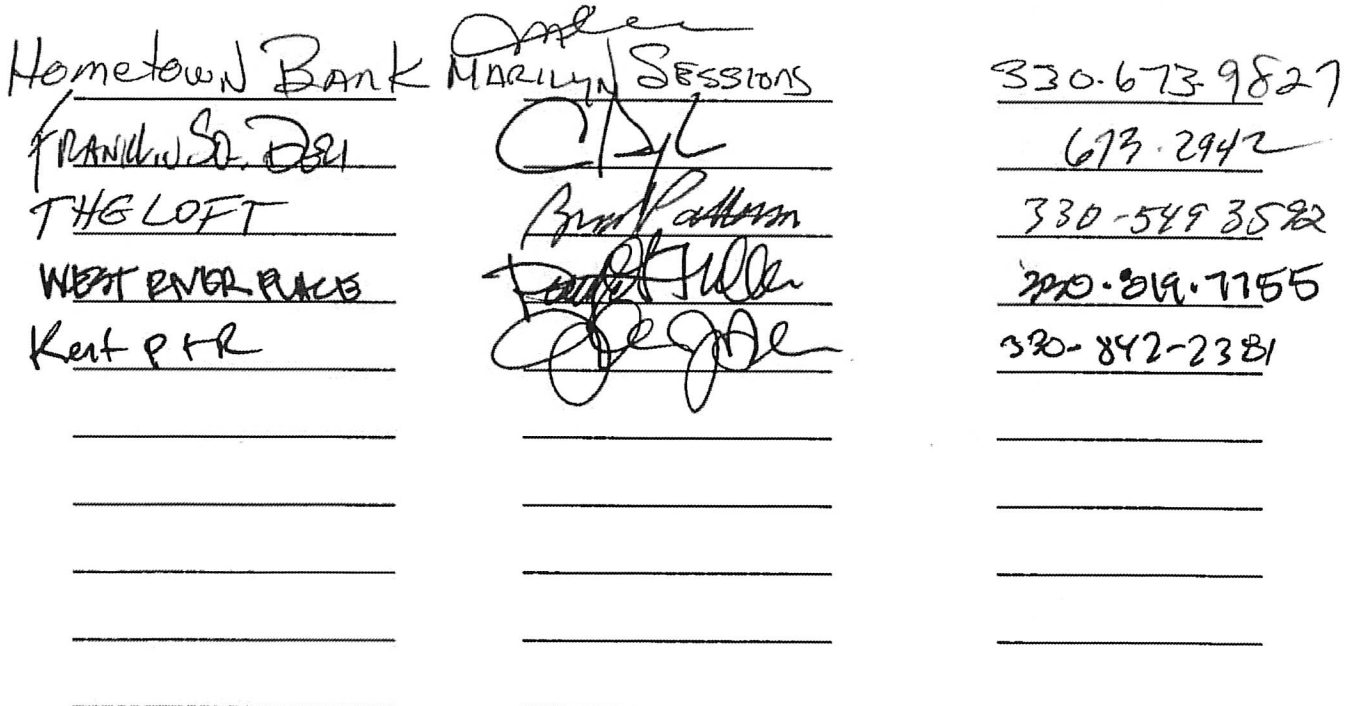 Hometown Bank MARILYN SESSIONS 330.673.9827
FRANKLIN SQ. DELI 673.2942
THE LOFT 330-549 3582
WEST RIVER PLACE 330.819.7755
Kent P+R 330-842-2381